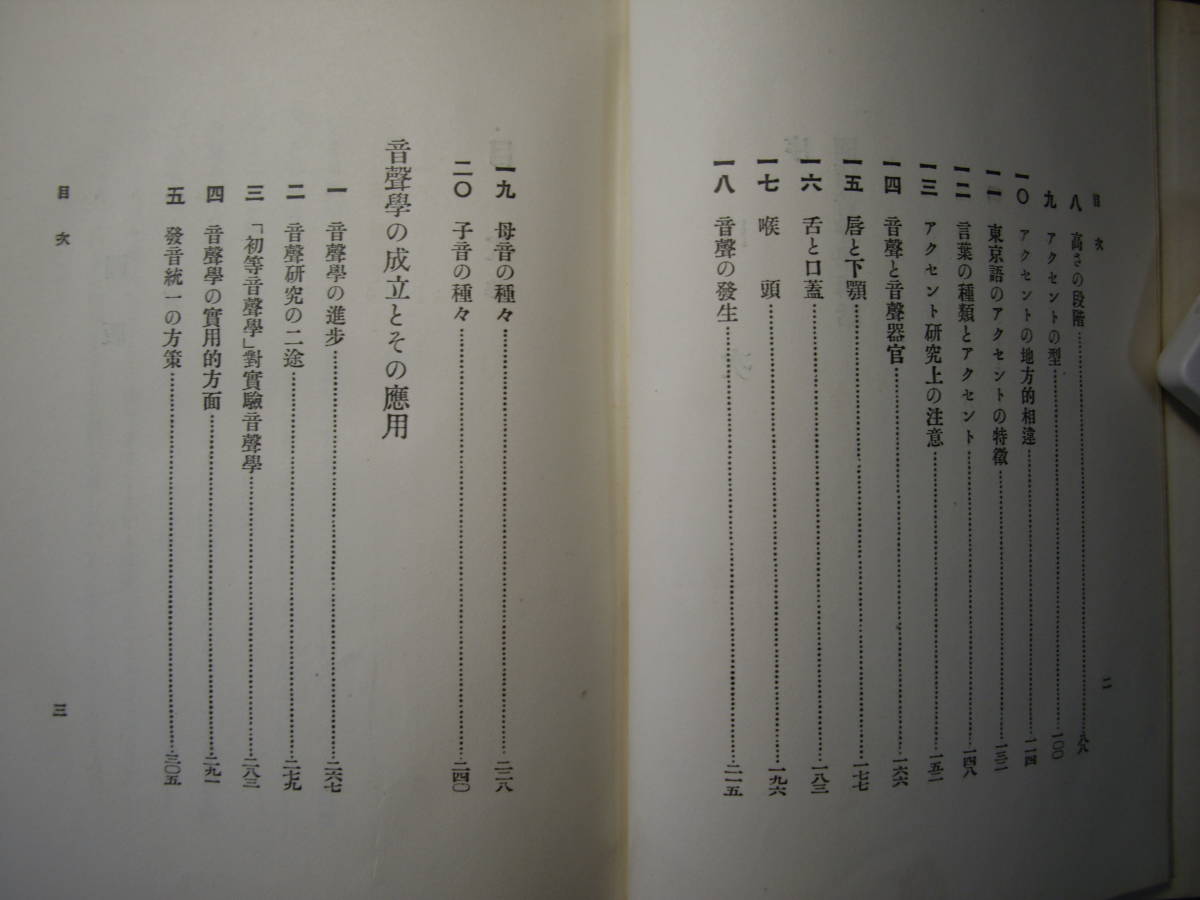 目次
二
八 高さの段階……八八
九 アクセントの型……一〇〇
一〇 アクセントの地方的相違……一一四
一一 東京語のアクセントの特徴……一三二
一二 言葉の種類とアクセント……一四八
一三 アクセント研究上の注意……一五二
一四 音聲と音聲器官……一六六
一五 唇と下顎……一七七
一六 舌と口蓋……一八三
一七 喉頭……一九六
一八 音聲の發生……二一五
一九 母音の種々……二二八
二〇 子音の種々……二四〇
音聲學の成立とその應用
一 音聲學の進步……二六七
二 音聲研究の二途……二七九
三 「初等音聲學」對實驗音聲學……二八三
四 音聲學の實用的方面……二九一
五 發音統一の方策……三〇五
目次
三